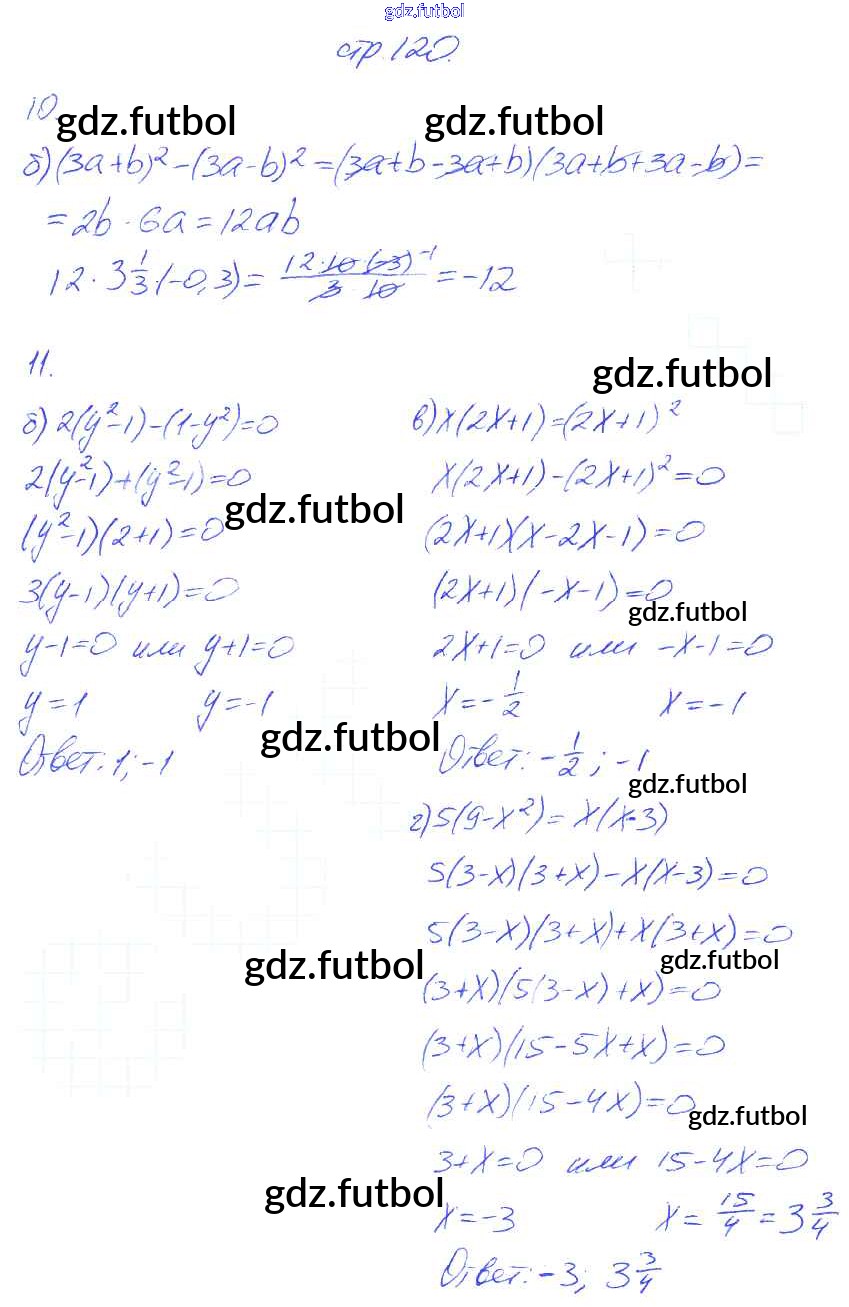 gdz.futbol
стр. 120.
10.
gdz.futbol gdz.futbol
б) (3a+b)²-(3a-b)²=(3a+b-3a+b)(3a+b+3a-b)=
=2b·6a=12ab
12·3 1/3·(-0,3)= 12·10·(-3)⁻¹/3·10 =-12
11.
gdz.futbol
б) 2(y²-1)-(1-y²)=0
2(y²-1)+(y²-1)=0
gdz.futbol
(y²-1)(2+1)=0
3(y-1)(y+1)=0
y-1=0 или y+1=0
y=1 y=-1
gdz.futbol
Ответ: 1; -1
в) x(2x+1)=(2x+1)²
x(2x+1)-(2x+1)²=0
(2x+1)(x-2x-1)=0
(2x+1)(-x-1)=0
gdz.futbol
2x+1=0 или -x-1=0
x=-1/2 x=-1
Ответ: -1/2; -1
gdz.futbol
г) 5(9-x²)=x(x-3)
5(3-x)(3+x)-x(x-3)=0
5(3-x)(3+x)+x(3+x)=0
gdz.futbol gdz.futbol
(3+x)(5(3-x)+x)=0
(3+x)(15-5x+x)=0
(3+x)(15-4x)=0
gdz.futbol
3+x=0 или 15-4x=0
gdz.futbol
x=-3 x=15/4=3 3/4
Ответ: -3; 3 3/4